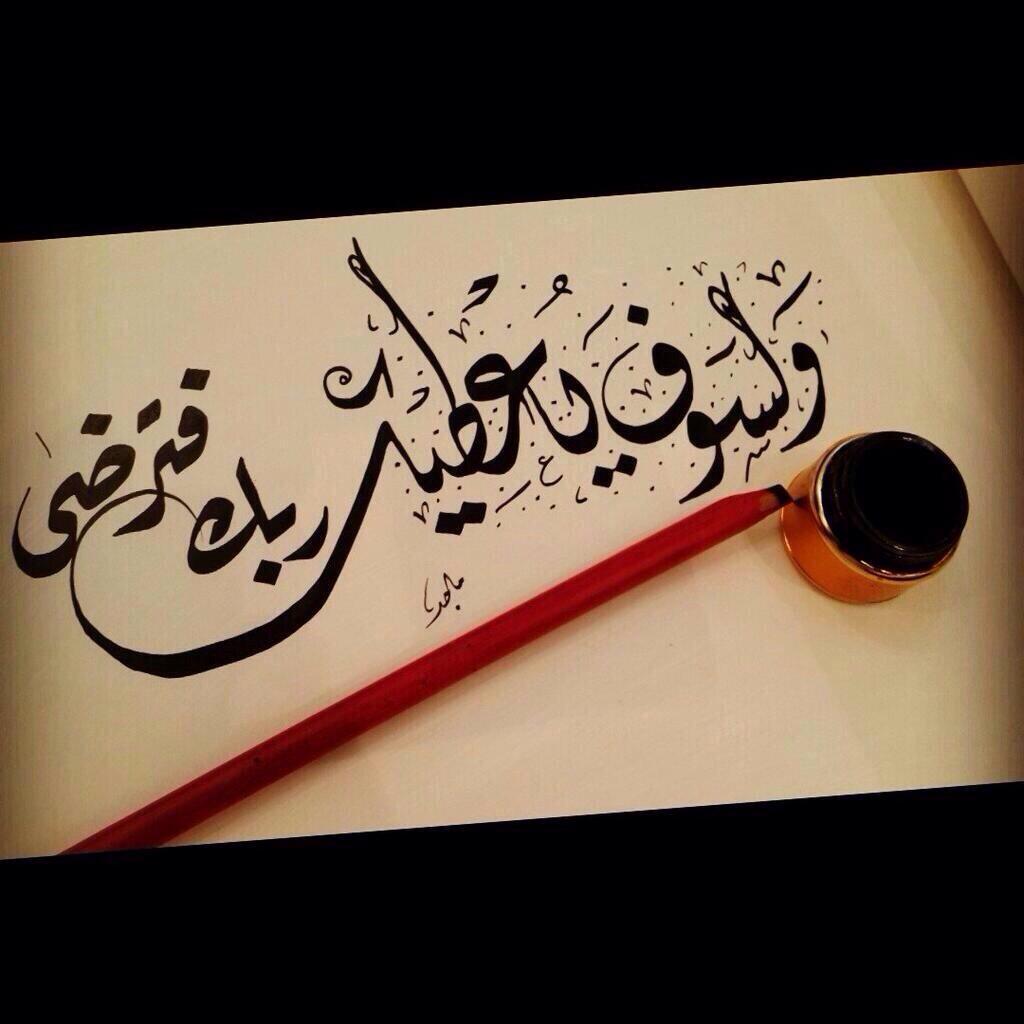 وَلَسَوفَ يُعْطِيكَ ربك فترضى
ماجد